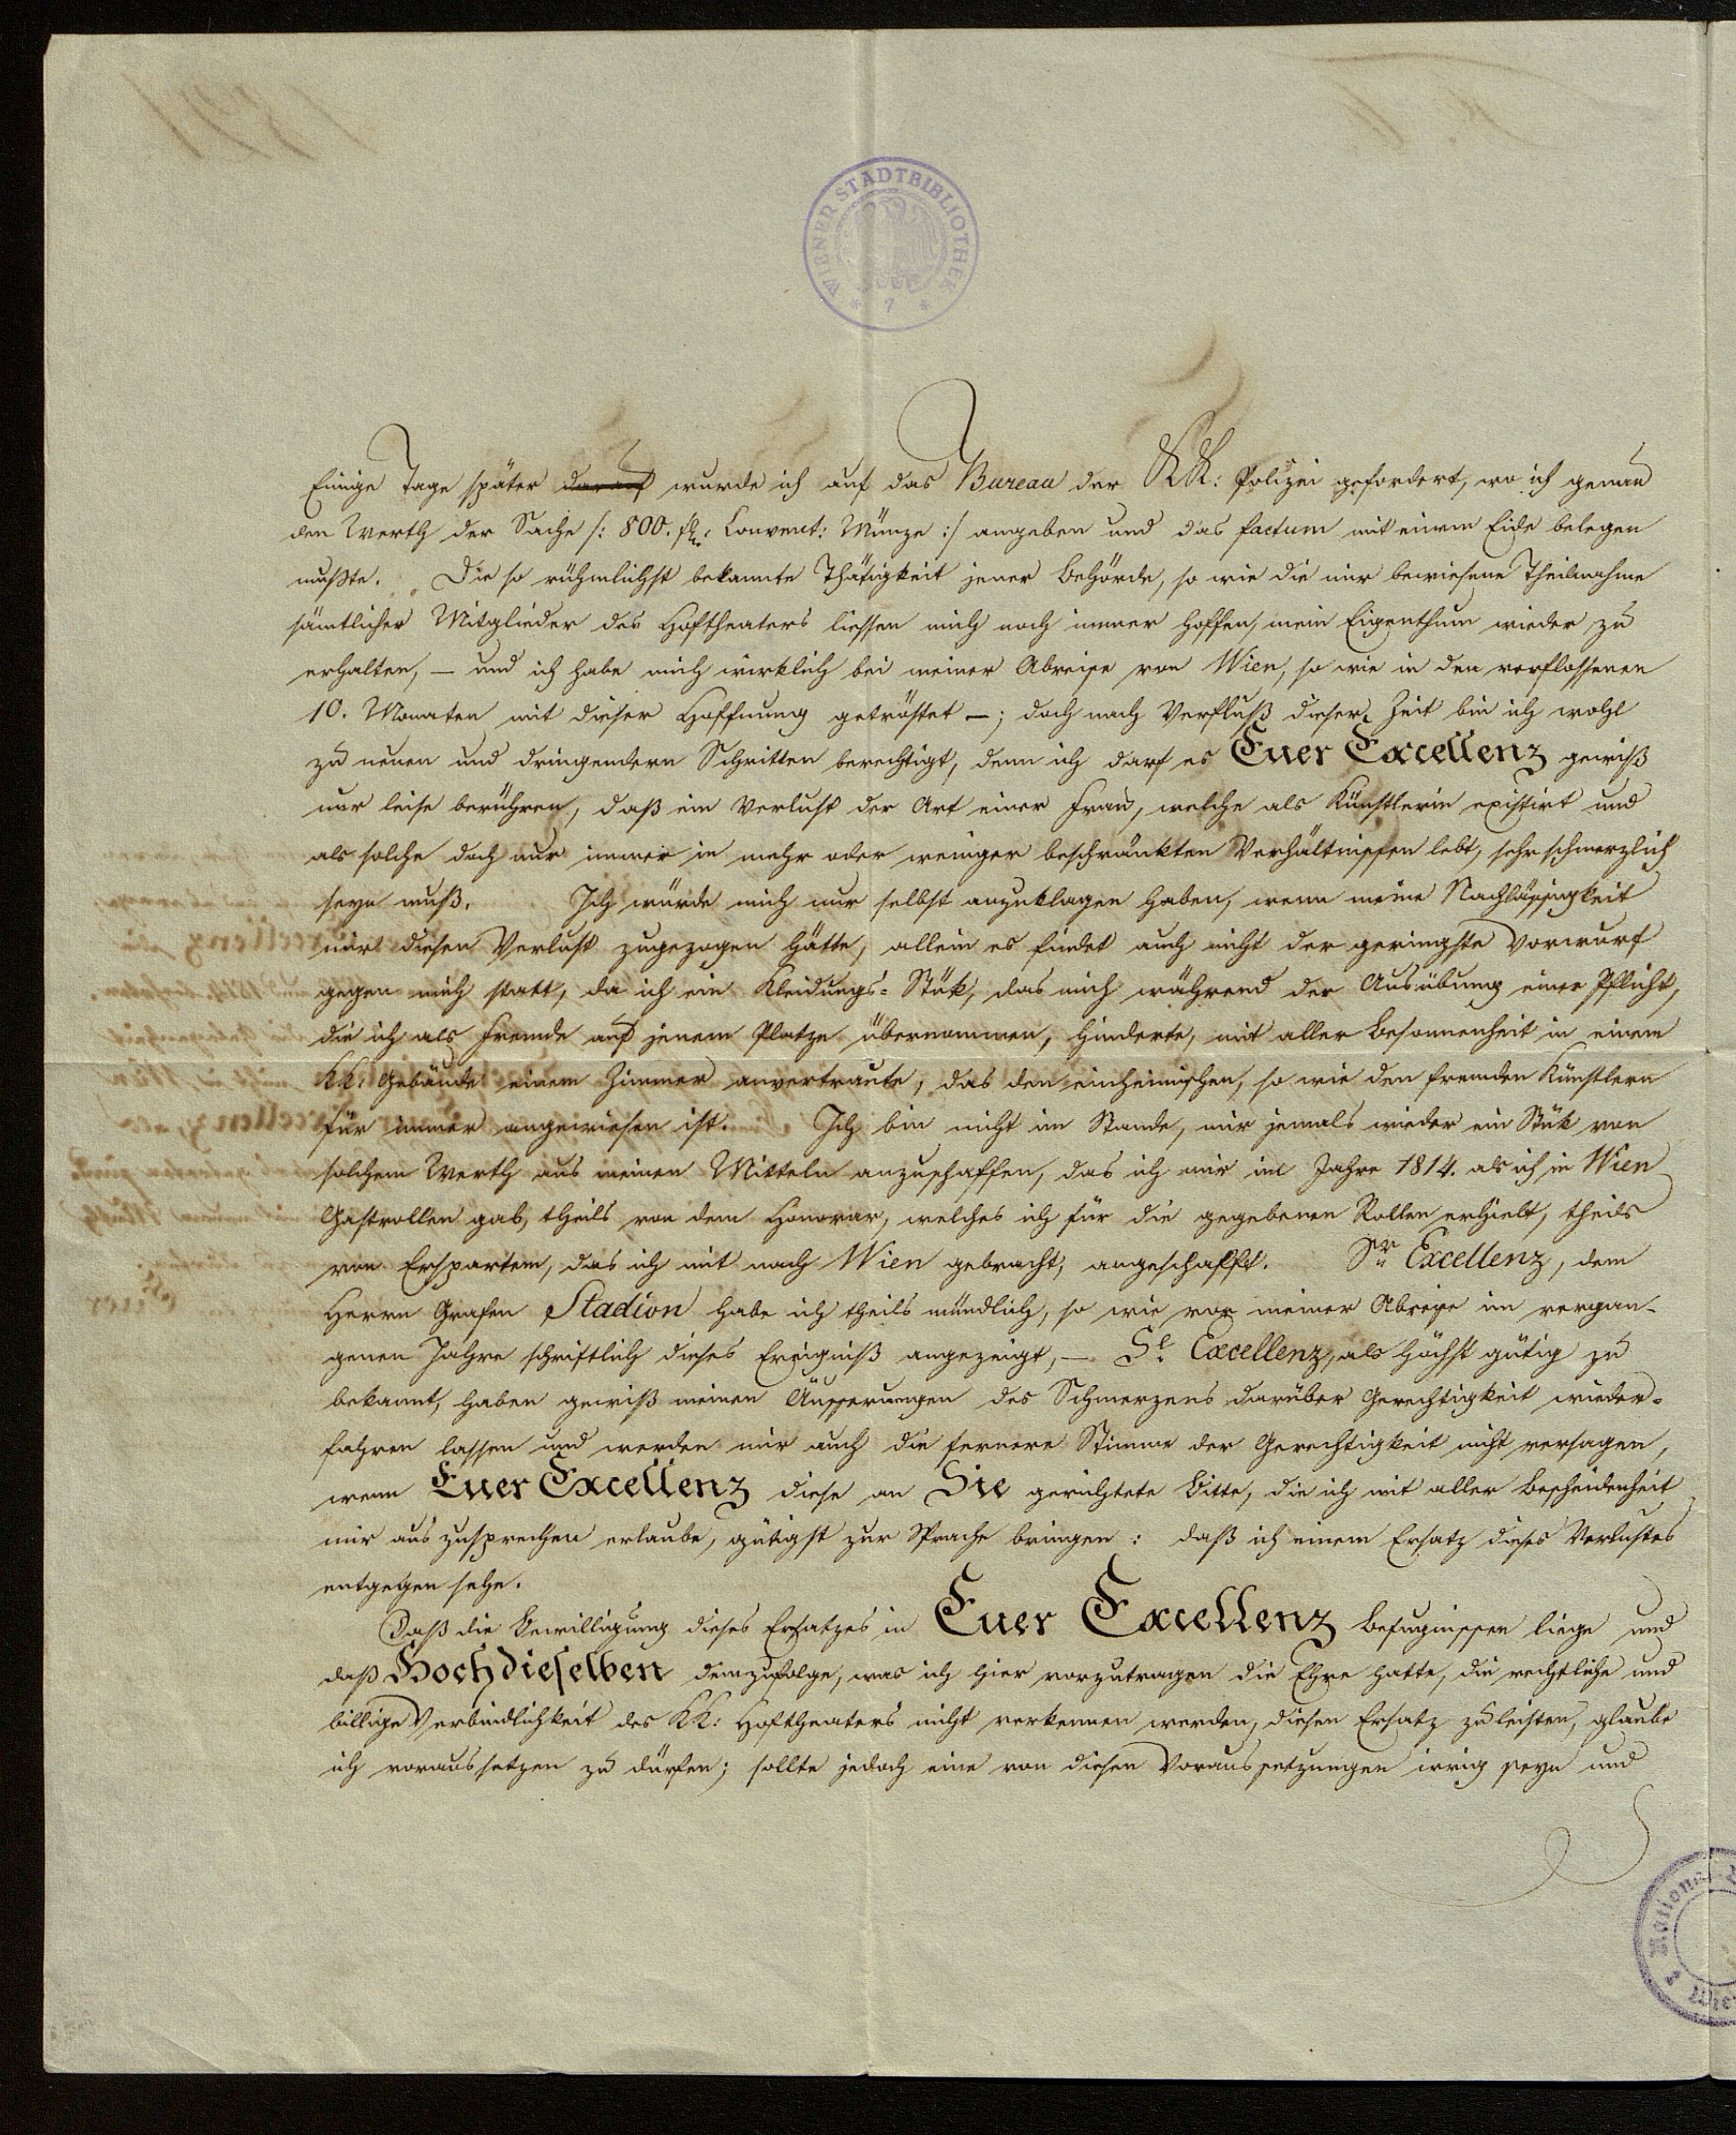 WIENER STADTBIBLIOTHEK
* 7 *
Einige Tage später darauf wurde ich auf das Bureau der KK: Polizei gefordert, wo ich genau
den Werth der Sache /: 800. fl: Convent: Münze :/ angeben und das factum mit einem Eide belegen
mußte. Die so rühmlichst bekannte Thätigkeit jener Behörde, so wie die mir bewiesene Theilnahme
sämtlicher Mitglieder des Hoftheaters liessen mich noch immer hoffen, mein Eigenthum wieder zu
erhalten, — und ich habe mich wirklich bei meiner Abreise von Wien, so wie in den verflossenen
10. Monaten mit dieser Hoffnung getröstet —; doch nach Verfluß dieser Zeit bin ich wohl
zu neuen und dringendern Schritten berechtigt, denn ich darf es Euer Excellenz gewiß
nur leise berühren, daß ein Verlust der Art einer Frau, welche als Künstlerin existirt und
als solche doch nur immer in mehr oder weniger beschränkten Verhältnissen lebt, sehr schmerzlich
seyn muß. Ich würde mich nur selbst anzuklagen haben, wenn meine Nachlässigkeit
mir diesen Verlust zugezogen hätte, allein es findet auch nicht der geringste Vorwurf
gegen mich statt, da ich ein Kleidungs-Stük, das mich während der Ausübung einer Pflicht,
die ich als Fremde auf jenem Platze übernommen, hinderte, mit aller Besonnenheit in einem
KK: Gebäude einem Zimmer anvertraute, das den einheimischen, so wie den fremden Künstlern
für immer angewiesen ist. Ich bin nicht im Stande, mir jemals wieder ein Stük von
solchem Werth aus meinen Mitteln anzuschaffen, das ich mir im Jahre 1814. als ich in Wien
Gastrollen gab, theils von dem Honorar, welches ich für die gegebenen Rollen erhielt, theils
von Erspartem, das ich mit nach Wien gebracht, angeschafft. Sr Excellenz, dem
Herrn Grafen Stadion habe ich theils mündlich, so wie vor meiner Abreise im vergan-
genen Jahre schriftlich dieses Ereigniß angezeigt, — Se. Excellenz, als höchst gütig zu
bekannt, haben gewiß meinen Äusserungen des Schmerzens darüber Gerechtigkeit wieder-
fahren lassen und werden mir auch die fernere Stimme der Gerechtigkeit nicht versagen,
wenn Euer Excellenz diese an Sie gerichtete Bitte, die ich mit aller Bescheidenheit
mir aus zusprechen erlaube, gütigst zur Sprache bringen: daß ich einem Ersatz dieses Verlustes
entgegen sehe.
Daß die Bewilligung dieses Ersatzes in Euer Excellenz Befugnissen liege und
daß Hochdieselben demzufolge, was ich hier vorzutragen die Ehre hatte, die rechtliche und
billige Verbindlichkeit des KK: Hoftheaters nicht verkennen werden, diesen Ersatz zu leisten, glaube
ich voraussetzen zu dürfen; sollte jedoch eine von diesen Voraussetzungen irrig seyn und